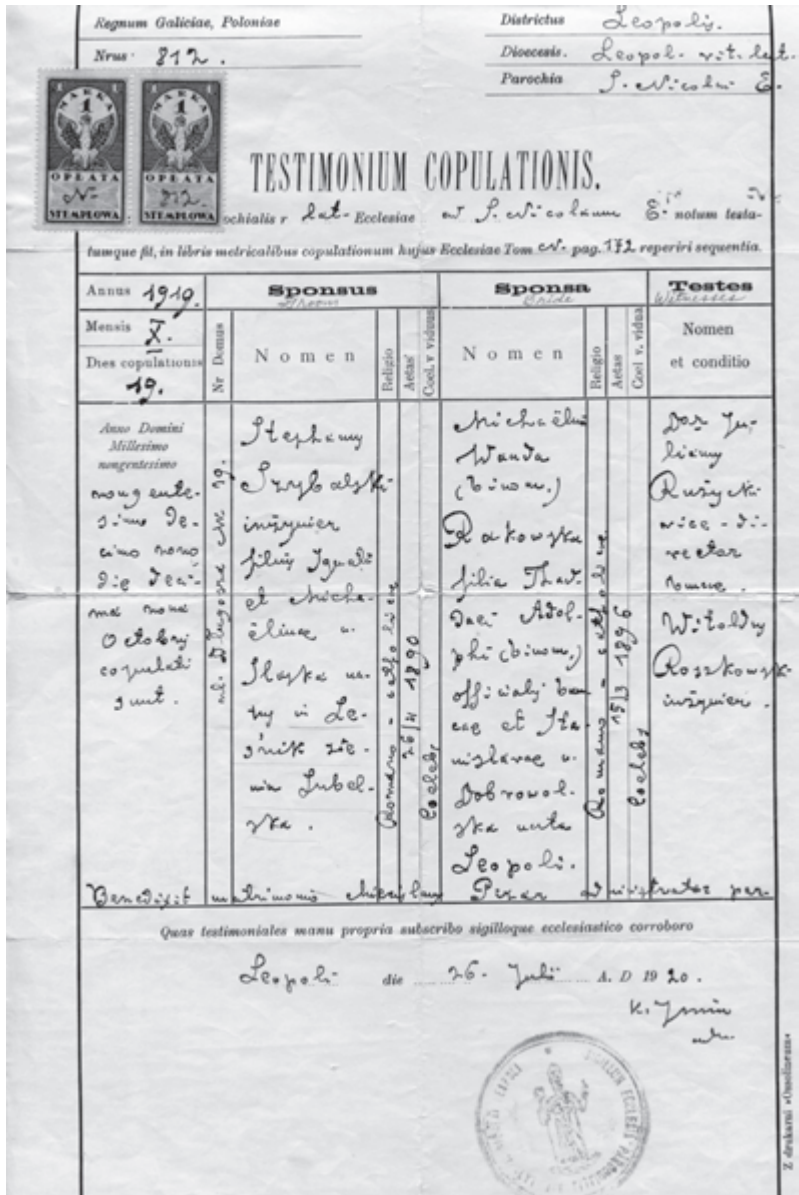 Regnum Galiciae, Poloniae
Nrus 812.
Districtus Leopolis.
Dioecesis. Leopol. rit. lat.
Parochia S. Nicolai E.
MARKA 1
OPŁATA
N.
STEMPLOWA
MARKA 1
OPŁATA
812.
STEMPLOWA
TESTIMONIUM COPULATIONIS.
ochialis r lat. Ecclesiae ad S. Nicolaum E. notum testa-
tumque fit, in libris metricalibus copulationum hujus Ecclesiae Tom pag. 172 reperiri sequentia.
Annus 1919.
Mensis X.
Dies copulationis
19.
Sponsus
Groom
Nr Domus
Nomen
Religio
Aetas
Coel. v viduus
Sponsa
Bride
Nomen
Religio
Aetas
Coel v. vidua
Testes
Witnesses
Nomen
et conditio
Anno Domini
Millesimo
nongentesimo
nongente-
simo de-
cimo nono
die deci-
ma nona
Octobris
copulati
sunt.
ul. Długosza 19.
Stephanus
Szybalski
inżynier
filius Ignatii
et Micha-
ëlinae
Slaska na-
tus in Le-
śnik zie-
mia Lubel-
ska.
Romano-catholica
1890
Coelebs
Michaëlina
Wanda
(binom.)
Rakowska
filia Thad-
daei Adol-
phi (binom.)
officialis ban-
cae et Sta-
nislavae
Dobrowol-
ska nata
Leopoli.
Romano-catholica
15/3 1896
Coelebs
Ju-
lianus
Rużycki
vice-di-
rector
Witoldus
Roszkowski
inżynier.
Benedixit matrimonio Pizar administrator par.
Quas testimoniales manu propria subscribo sigilloque ecclesiastico corroboro
Leopoli die 26. Julii A. D 1920.
Z drukarni »Ossolineum«